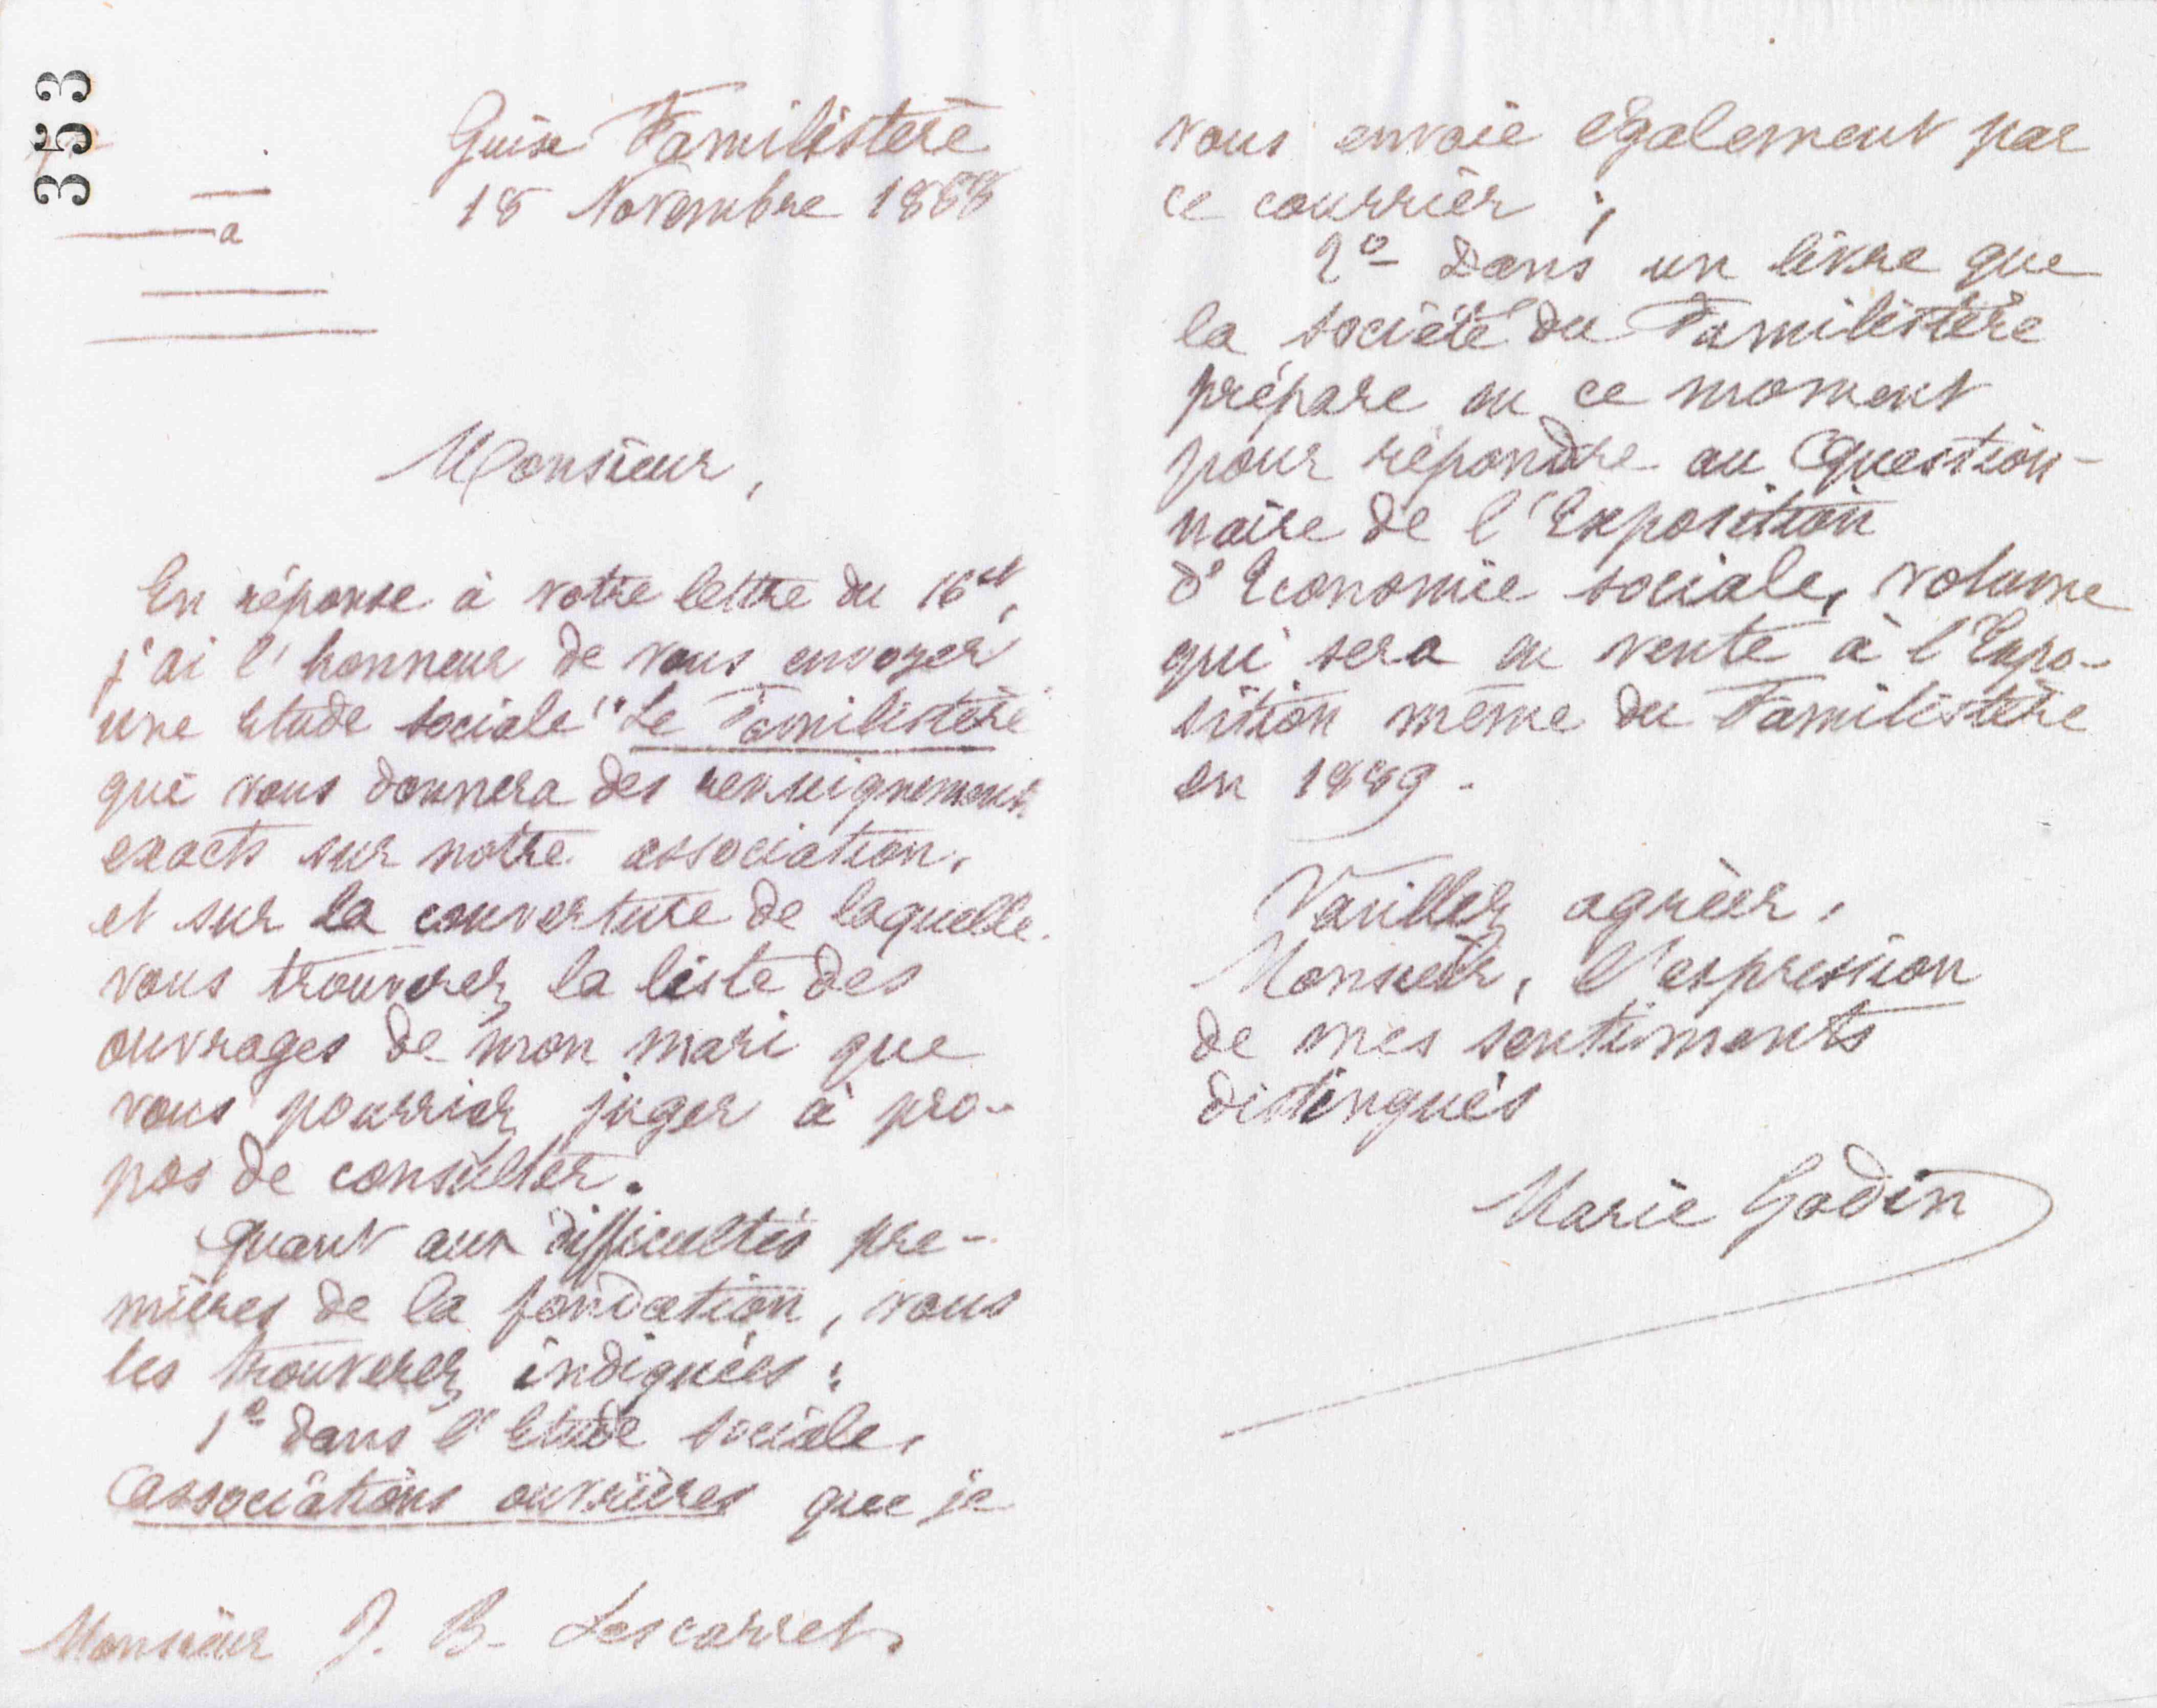 353
Guise Familistère
18 Novembre 1888
a
Monsieur,
En réponse à votre lettre du 16 ct,
j'ai l'honneur de vous envoyer
une Etude sociale "Le Familistère
qui vous donnera des renseignements
exacts sur notre association,
et sur la couverture de laquelle
vous trouverez la liste des
ouvrages de mon mari que
vous pourriez juger à pro-
pos de consulter.
Quant aux difficultés pre-
mières de la fondation, vous
les trouverez indiquées :
1° dans l'Etude sociale,
Associations ouvrières que je
Monsieur J. B. Lescarret.
vous envoie également par
ce courrier ;
2° Dans un livre que
la société du Familistère
prépare en ce moment
pour répondre au Question-
naire de l'Exposition
d'Economie sociale, volume
qui sera en vente à l'Expo-
sition même du Familistère
en 1889.
Veuillez agréer,
Monsieur, l'expression
de mes sentiments
distingués
Marie Godin